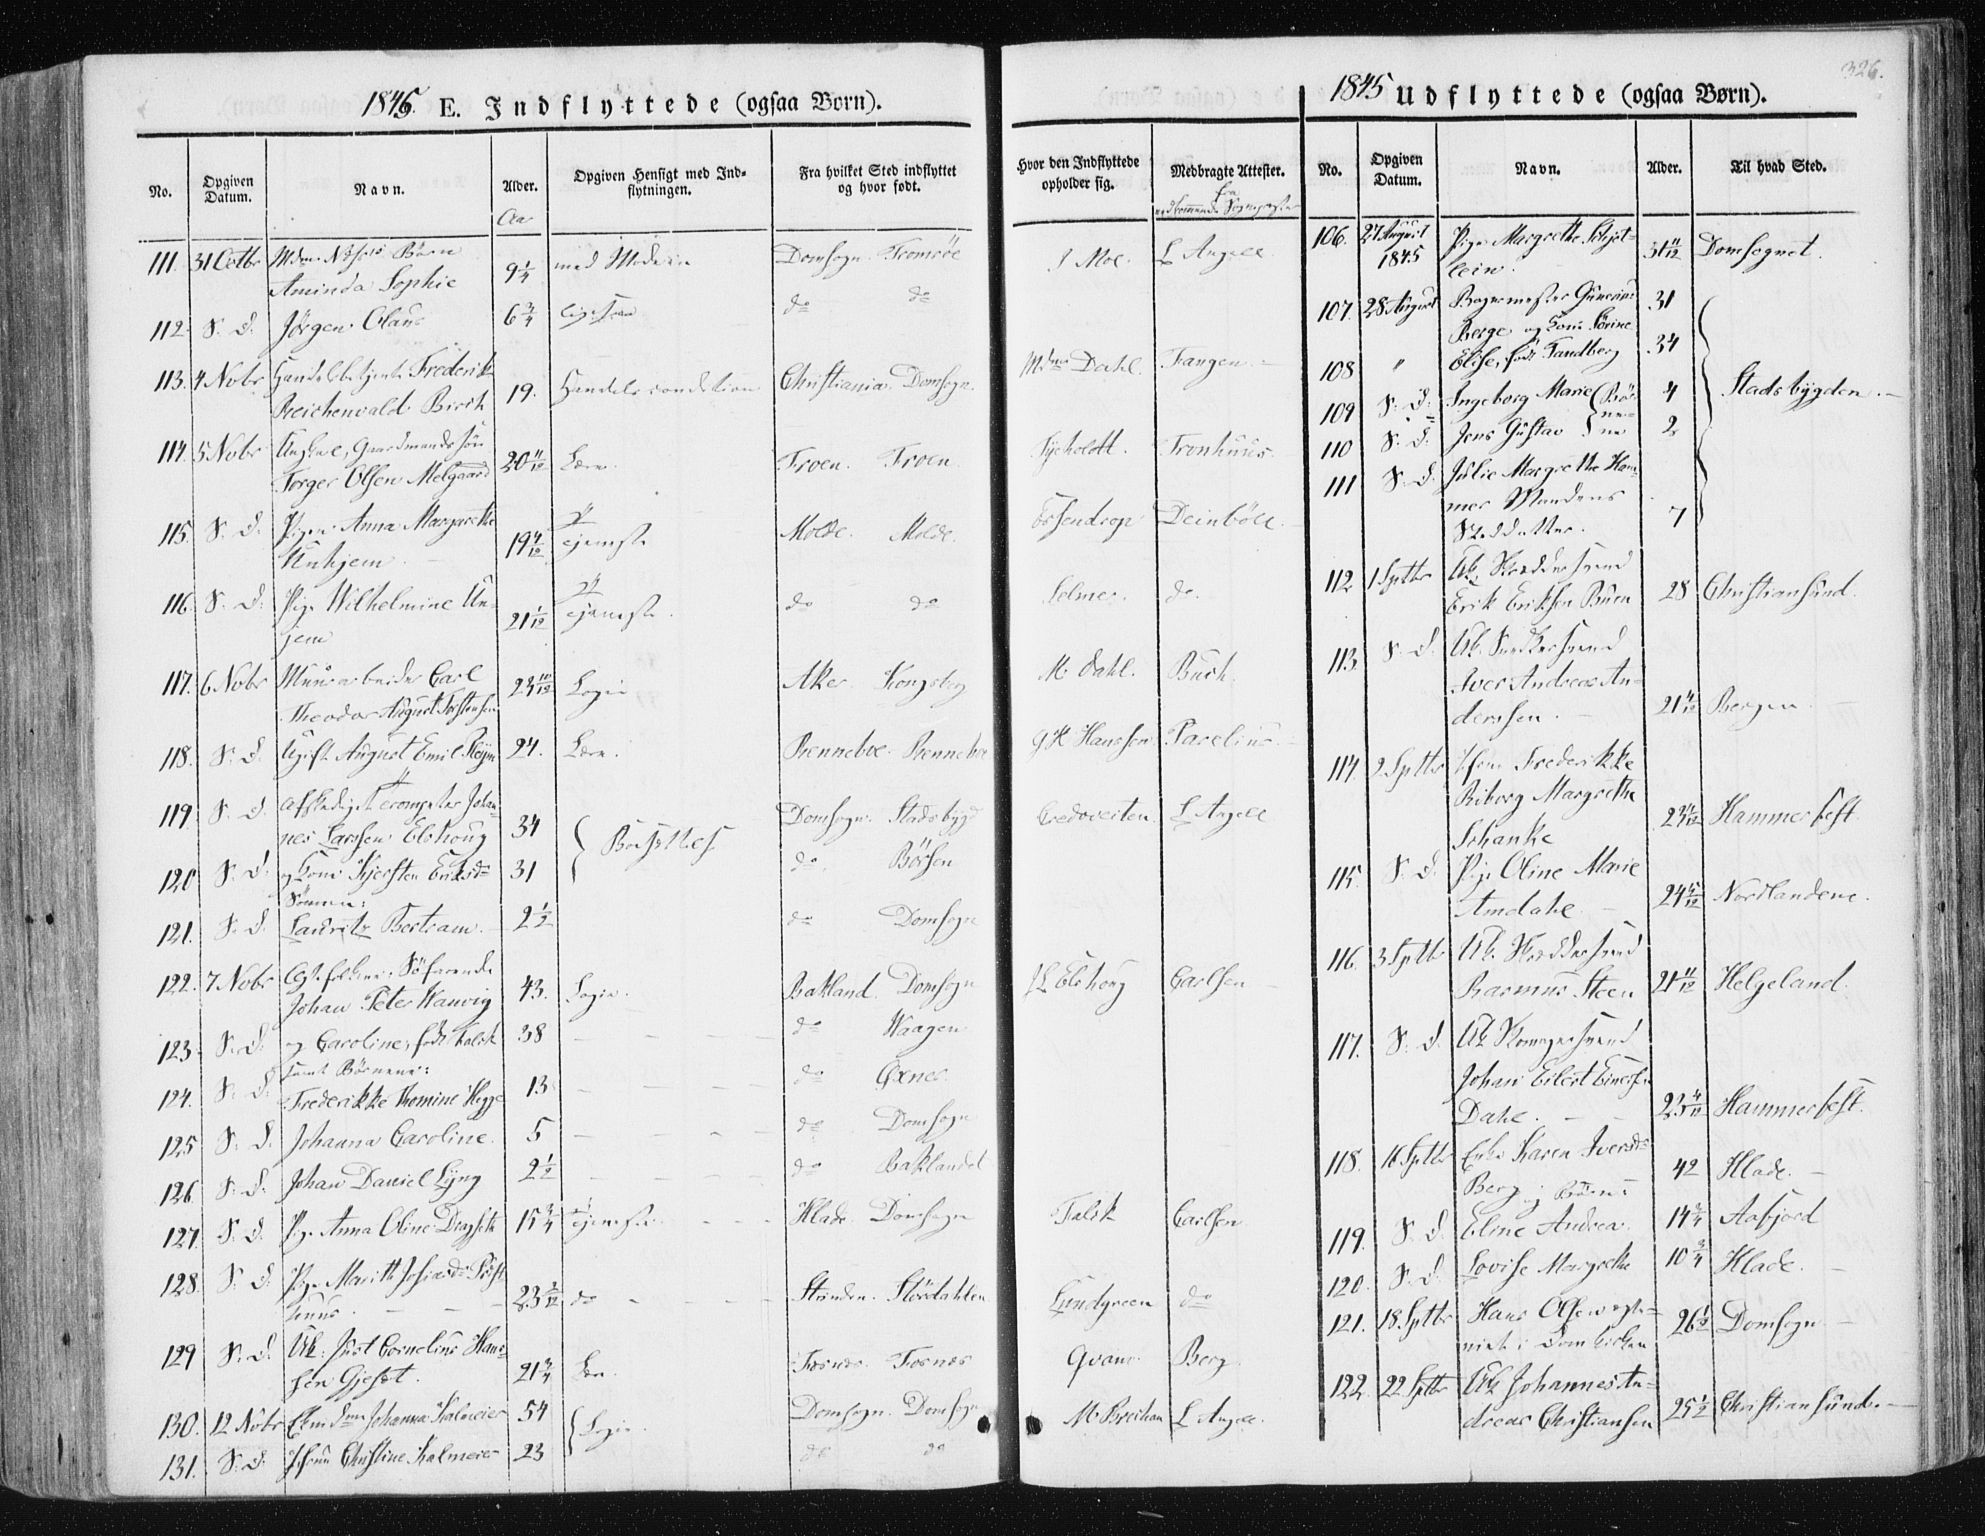 326.
1845. E. Indflyttede (ogsaa Born).
No. Opgiven Datum. Navn. Alder. Opgiven Hensigt med Indflytningen. Fra hvilket Sted indflyttet og hvor født. Hvor den Indflyttede opholder sig. Medbragte Attester.
Aar
fra vedkommende Sognepræster
111. 31 Octbr Mdm Børn
Aminda Sophie 9 1/4 med Moderen Domsogn. Tromsöe J Moe. L Angell
112. S. D. Jörgen Claus 6 3/4 ligesaa do do
113. 4 Novbr Handelsbetjent Frederik
Reichenwald Birch 19. Handelscondition Christiania Domsogn. Mdm Dahl. Fangen.
114. 5 Novbr Ungkarl, Gaardmandssön
Torger Olsen Melgaard 20 11/12 Lære. Froen. Froen. Tyholdt. Tronhuus.
115. S. D. Pigen Anna Margarethe
Unhjem 19 4/12 Tjeneste Molde. Molde. Essendrop Deinböll.
116. S. D. Pige Wilhelmine Unjem
21 1/12 Tjeneste. do do Selmer. do.
117. 6 Novbr Muurarbeider Carl
Theodor August Torstensen 23 10/12 Logie Aker Kongsberg M. Dahl. Buch.
118. S. D. Ugift August Emil 24. Lære. Renneboe. Rennebo G K Hanssen Parelius.
119. S. D. Afskediget Trompeter Johannes
Larssen Elshoug 34 Bosættes Domsogn. Stadsbygd Credoveiten. L Angell
120 S. D. og Kone Kjersten Eriksdr 31 do. Börsen
Sönnen:
121. S. D. Lauritz Bertram. 2 1/2 do Domsogn
122. 7 Novbr Ægtefolkene: Söfarende
Johan Peter Wanvig 43. Logie. Bakland. Domsogn J L Elshoug Carlsen
123. S. D. og Caroline, födt Falck 38 do Waagen
samt Börnene:
124. S. D. Frederikke Thomine Hegge 13 do Öxnes.
125 S. D. Johanna Caroline. 5 do Domsogn
126. S. D. Johan Daniel Lyng 2 1/2 do Baklandet
127. S. D. Pige Anna Oline Dragsete 15 3/4 Tjeneste. Hlade. Domsogn Falck Carlsen
128. S. D. Pige Marith Josiasdr
huus. 23 3/12 do Strinden. Stördahlen Lundgreen do
129 S. D. Uk. Just Cornelius Hanssen
Gjeset. 21 3/4 Lære. Fosnæs. Fosnæs Qvam. Berg.
130. 12 Novbr Johanna Kalmeier 54 Logie. Domsogn. Domsogn M. Breihan L Angell.
131. S. D. Jfru Christine Kalmeier 23 do do
1845 Udflyttede (ogsaa Børn).
No. Opgiven Datum. Navn. Alder. Til hvad Sted.
106. 27 August 1845 Pige Margrethe Schjetlein.
31 11/12 Domsognet.
107. 28 August Bagermester Gunerius 31
Berge og Kone Sörine
108 " Elise, födt Tandberg 34
109 S. D. Ingeborg Marie Bör- 4 Stadsbygden.
110 S. D. Jens Gustav nene 2
111 S. D. Julie Margrethe Hammer
Mandens
Steddatter. 7
112. 1 Sptbr Uk. Skræddersvend
Erik Eriksen Buen 28 Christiansund.
113. S. D. Uk. Snedkersvend
Iver Andreas Anderssen.
21 4/12 Bergen.
114. 2 Sptbr Jfru Frederikke
Riborg Margrethe
Schanke 23 11/12 Hammerfest.
115. S. D. Pige Oline Marie
Amdahl. 24 5/12 Nordlandene.
116. 3 Sptbr Uk. Skræddersvend
Rasmus Steen 21 11/12 Helgeland.
117. S. D. Uk Skomagersvend
Johan Eilert Einersen
Dahl. 23 4/12 Hammerfest.
118. 16 Sptbr Enke Karen Iversdr
Berg og Börn: 42 Hlade.
119. S. D. Eline Andrea. 14 3/4 Aafjord
120. S. D. Lovise Margrethe 10 3/4 Hlade.
121. 18 Sptbr Hans Olsen
i Domkirken 26 1/2 Domsogn
122. 22 Sptbr Uk Johannes Andreas
Christiansen 25 1/2 Christiansund.